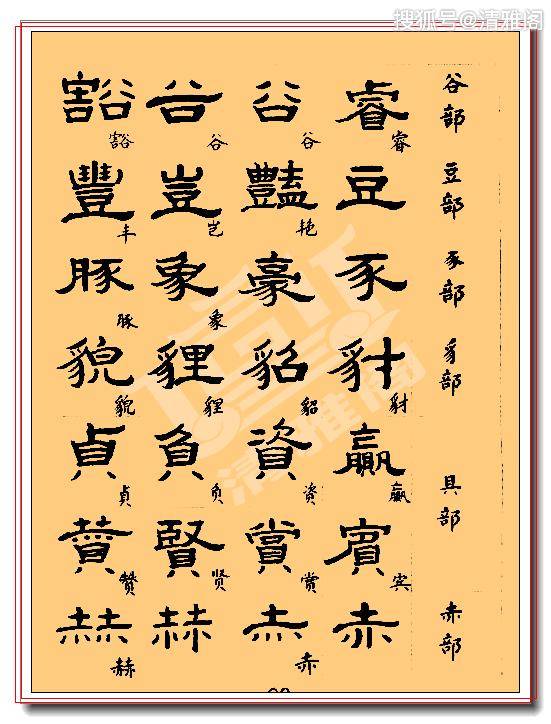 搜狐号@清雅阁
谷部 睿睿 谷谷 谷谷 豁豁
豆部 豆 豔艳 豈岂 豐丰
豕部 豕 豪 象象 豚豚
豸部 豺豺 貂貂 貍貍 貌貌
貝部 贏赢 資资 負负 貞贞
賓宾 賞赏 賢贤 贊赞
赤部 赤 赤赤 赫 赫赫
清雅阁